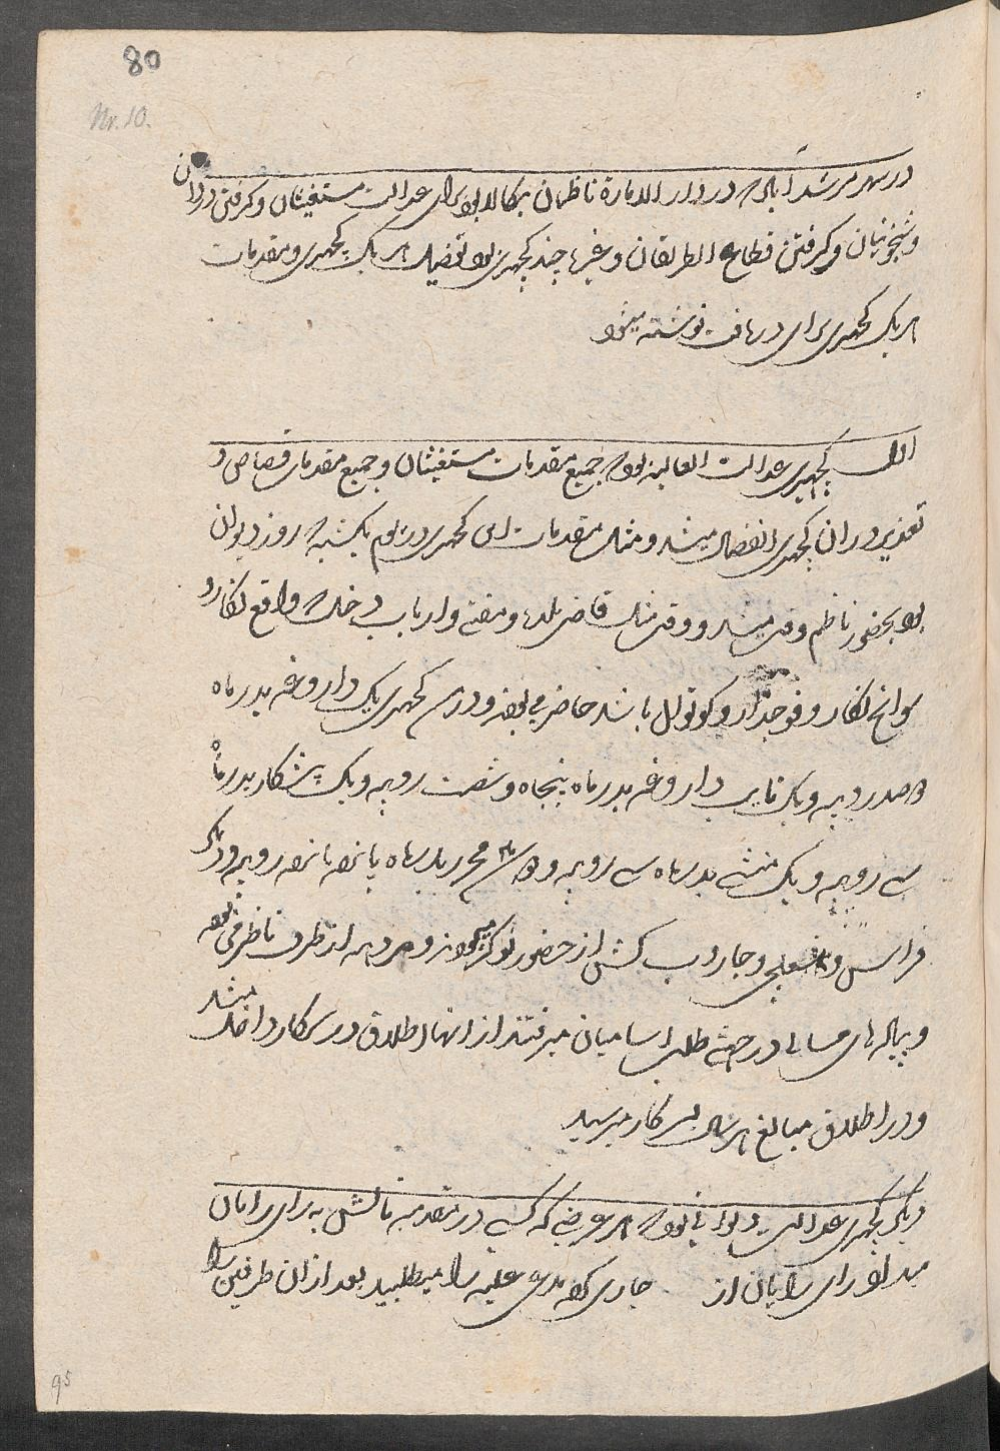 80
Nr. 10.
در شهر مرشد آباد که در دار الامارة ناظمان بنگالا بود برای عدالت مستغیثان و گرفتن دزدان
و خونیان و گرفتن قطاع الطریقان و غیرها چند کچهری بود تفصیل هر یک کچهری و مقدمات
هر یک کچهری برای دریافت نوشته میشود
اول کچهری عدالت العالیه بود که جمیع مقدمات مستغیثان و جمیع مقدمات قصاص و
تعذیر در ان کچهری انفصال میشد و مثل مقدمات این کچهری در یوم یکشنبه که روز دیوان
بود بحضور ناظم وقت میشد و وقت مثل قاضی بلده و مفتی و ارباب دخل که واقع نگار و
سوانح نگار و فوجدار و کوتوال باشد حاضر می بودند و درین کچهری یک داروغه بدرماه
دو صد روپیه و یک نایب داروغه بدرماه پنجاه و شصت روپیه و یک پیشکار بدرماه
سی روپیه و یک منشی بدرماه سی روپیه و محرر بدرماه پانزده پانزده روپیه و دیگر
فراش و مشعلچی و جاروب کش از حضور نوکر میبودند و مردهه از طرف ناظر می بودند
و پیاله های در جهته طلب اسامیان میرفتند از انها اطلاق در سرکار داخل میشد
و در اطلاق مبالغ هر سال بسرکار میرسید
دیگر کچهری عدالت دیوانی بود که هر عرضی که کسی در مقدمه نالش به رای رایان
میداد رای رایان از جاری کرده مدعی علیه را میطلبید بعد از ان طرفین را
95